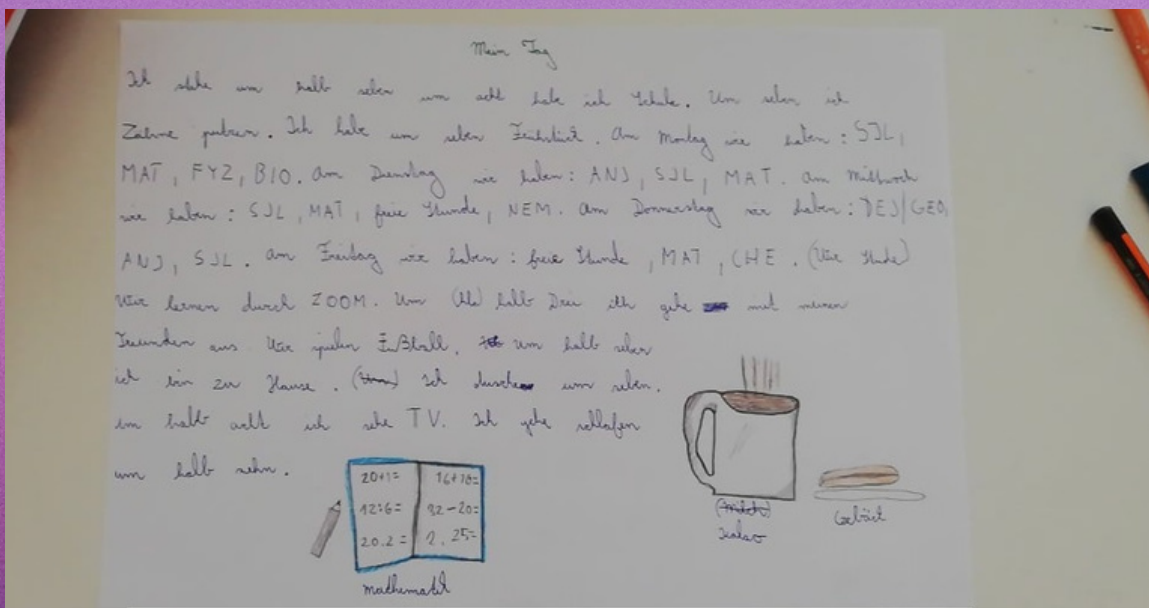 Mein Tag
Ich stehe um halb seben um acht habe ich Schule. Um seben ich
Zähne putzen. Ich habe um seben Frühstück. Am Montag wir haben: SJL,
MAT, FYZ, BIO. Am Dienstag wir haben: ANJ, SJL, MAT. Am Mittwoch
wir haben: SJL, MAT, freie Stunde, NEM. Am Donnerstag wir haben: DEJ/GEO,
ANJ, SJL. Am Freitag wir haben: freie Stunde, MAT, CHE. (Wir Stude)
Wir lernen durch ZOOM. Um halb Drei ich gehe mit meinen
Freunden aus Wir spielen Fußball. Um halb seben
ich bin zu Hause. Ich dusche um seben.
um halb acht ich sehe TV. Ich gehe schlafen
um halb zehn.
20+1= 16+18=
12:6= 32-20=
20.2= 2.25=
Mathematik
(Milch)
Kakao
Gebäck